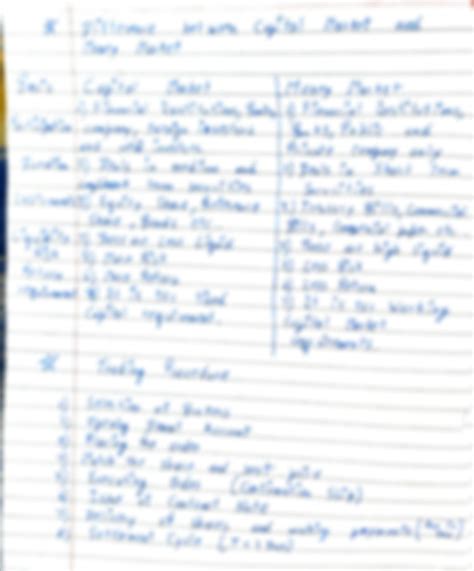 Difference between Capital Market and
Money Market
Basis Capital Market Money Market
1) Financial Institutions, Banks, 1) Financial Institutions,
company, foreign investors Banks, Public and
and Private company only
Duration 2) Deals in medium and 2) Deals in Short Term
term securities Securities
3) Equity Share, Preference 3) Treasury Bills, Commercial
Share, Bonds etc. Bills, Commercial paper etc
Liquidity 4) These are Less Liquid 4) These are High Liquid
Risk 5) More Risk 5) Less Risk
Return 6) More Return 6) Less Return
requirement 7) It is for fixed 7) It is for Working
Capital requirement. Capital Market
requirements.
Trading Procedure
1) Selection of Brokers
2) Opening Demat Account
3) Placing the order
4) Match the share and best price
5) Executing Order (Confirmation Slip)
6) Issue of Contract Note
7) Delivery of shares and making payments
8) Settlement Cycle